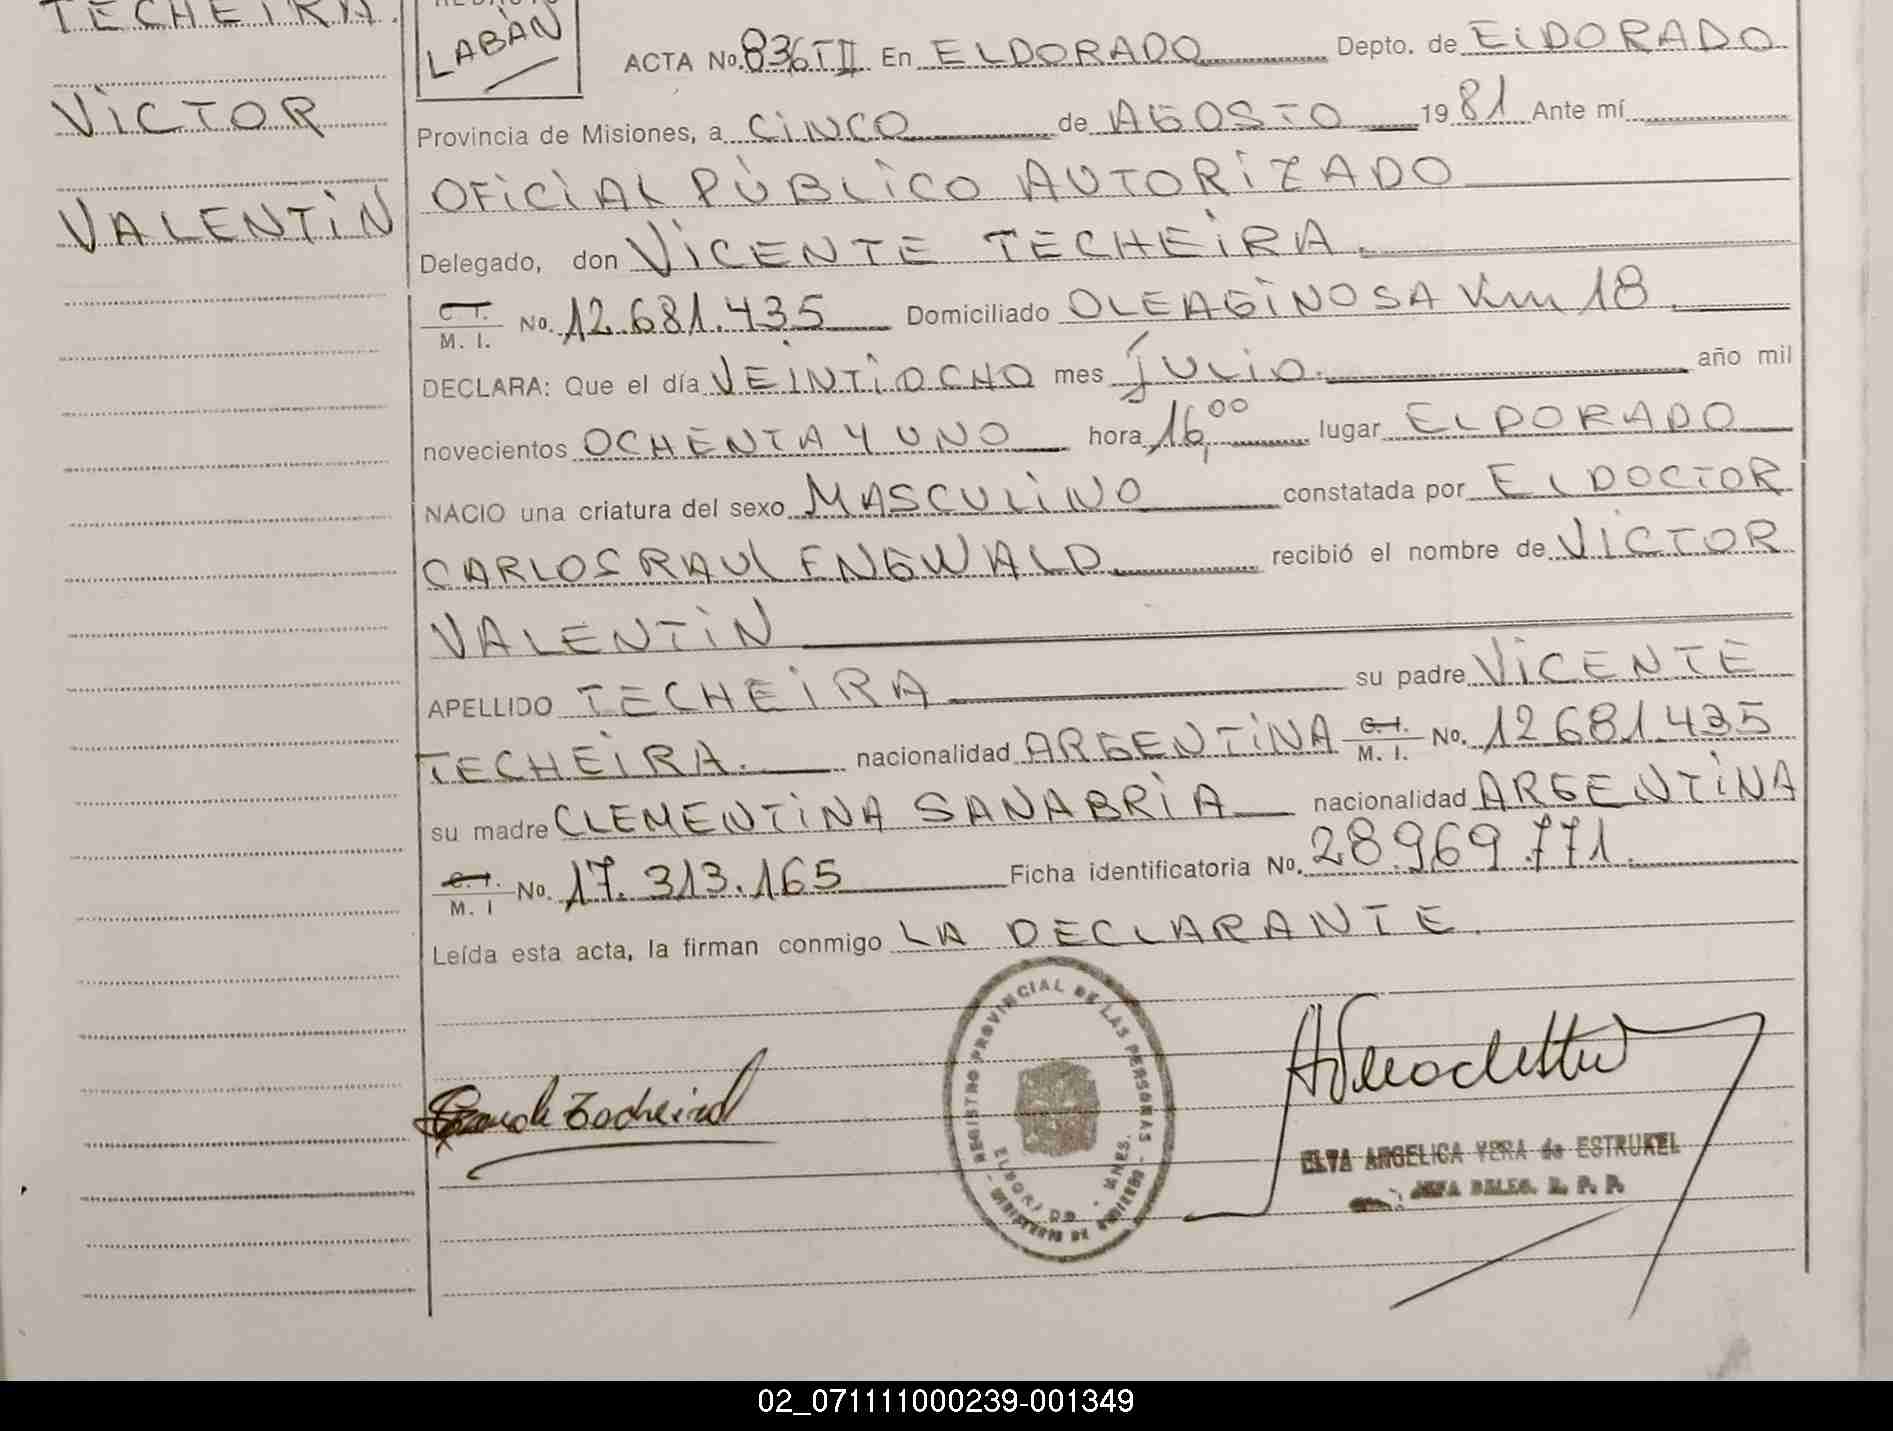 TECHEIRA.
VICTOR
VALENTIN
LABAN
ACTA No. 836 T II En ELDORADO Depto. de ELDORADO
Provincia de Misiones, a CINCO de AGOSTO 1981 Ante mí
OFICIAL PÚBLICO AUTORIZADO
Delegado, don VICENTE TECHEIRA.
C.I. M. I. No. 12.681.435 Domiciliado OLEAGINOSA Km 18
DECLARA: Que el día VEINTIOCHO mes JULIO. año mil
novecientos OCHENTA Y UNO hora 16,00 lugar ELDORADO
NACIO una criatura del sexo MASCULINO constatada por EL DOCTOR
CARLOS RAUL ENGWALD recibió el nombre de VICTOR
VALENTIN
APELLIDO TECHEIRA su padre VICENTE
TECHEIRA. nacionalidad ARGENTINA C.I. M. I. No. 12.681.435
su madre CLEMENTINA SANABRIA nacionalidad ARGENTINA
C.I. M. I No. 17.313.165 Ficha identificatoria No. 28.969.771.
Leída esta acta, la firman conmigo LA DECLARANTE.
REGISTRO PROVINCIAL DE LAS PERSONAS
ELDORADO - MNES.
MINISTERIO DE GOBIERNO
Techeira
ELVA ANGELICA VERA de ESTRUKEL
JEFA DELEG. R. P. P.
02_071111000239-001349